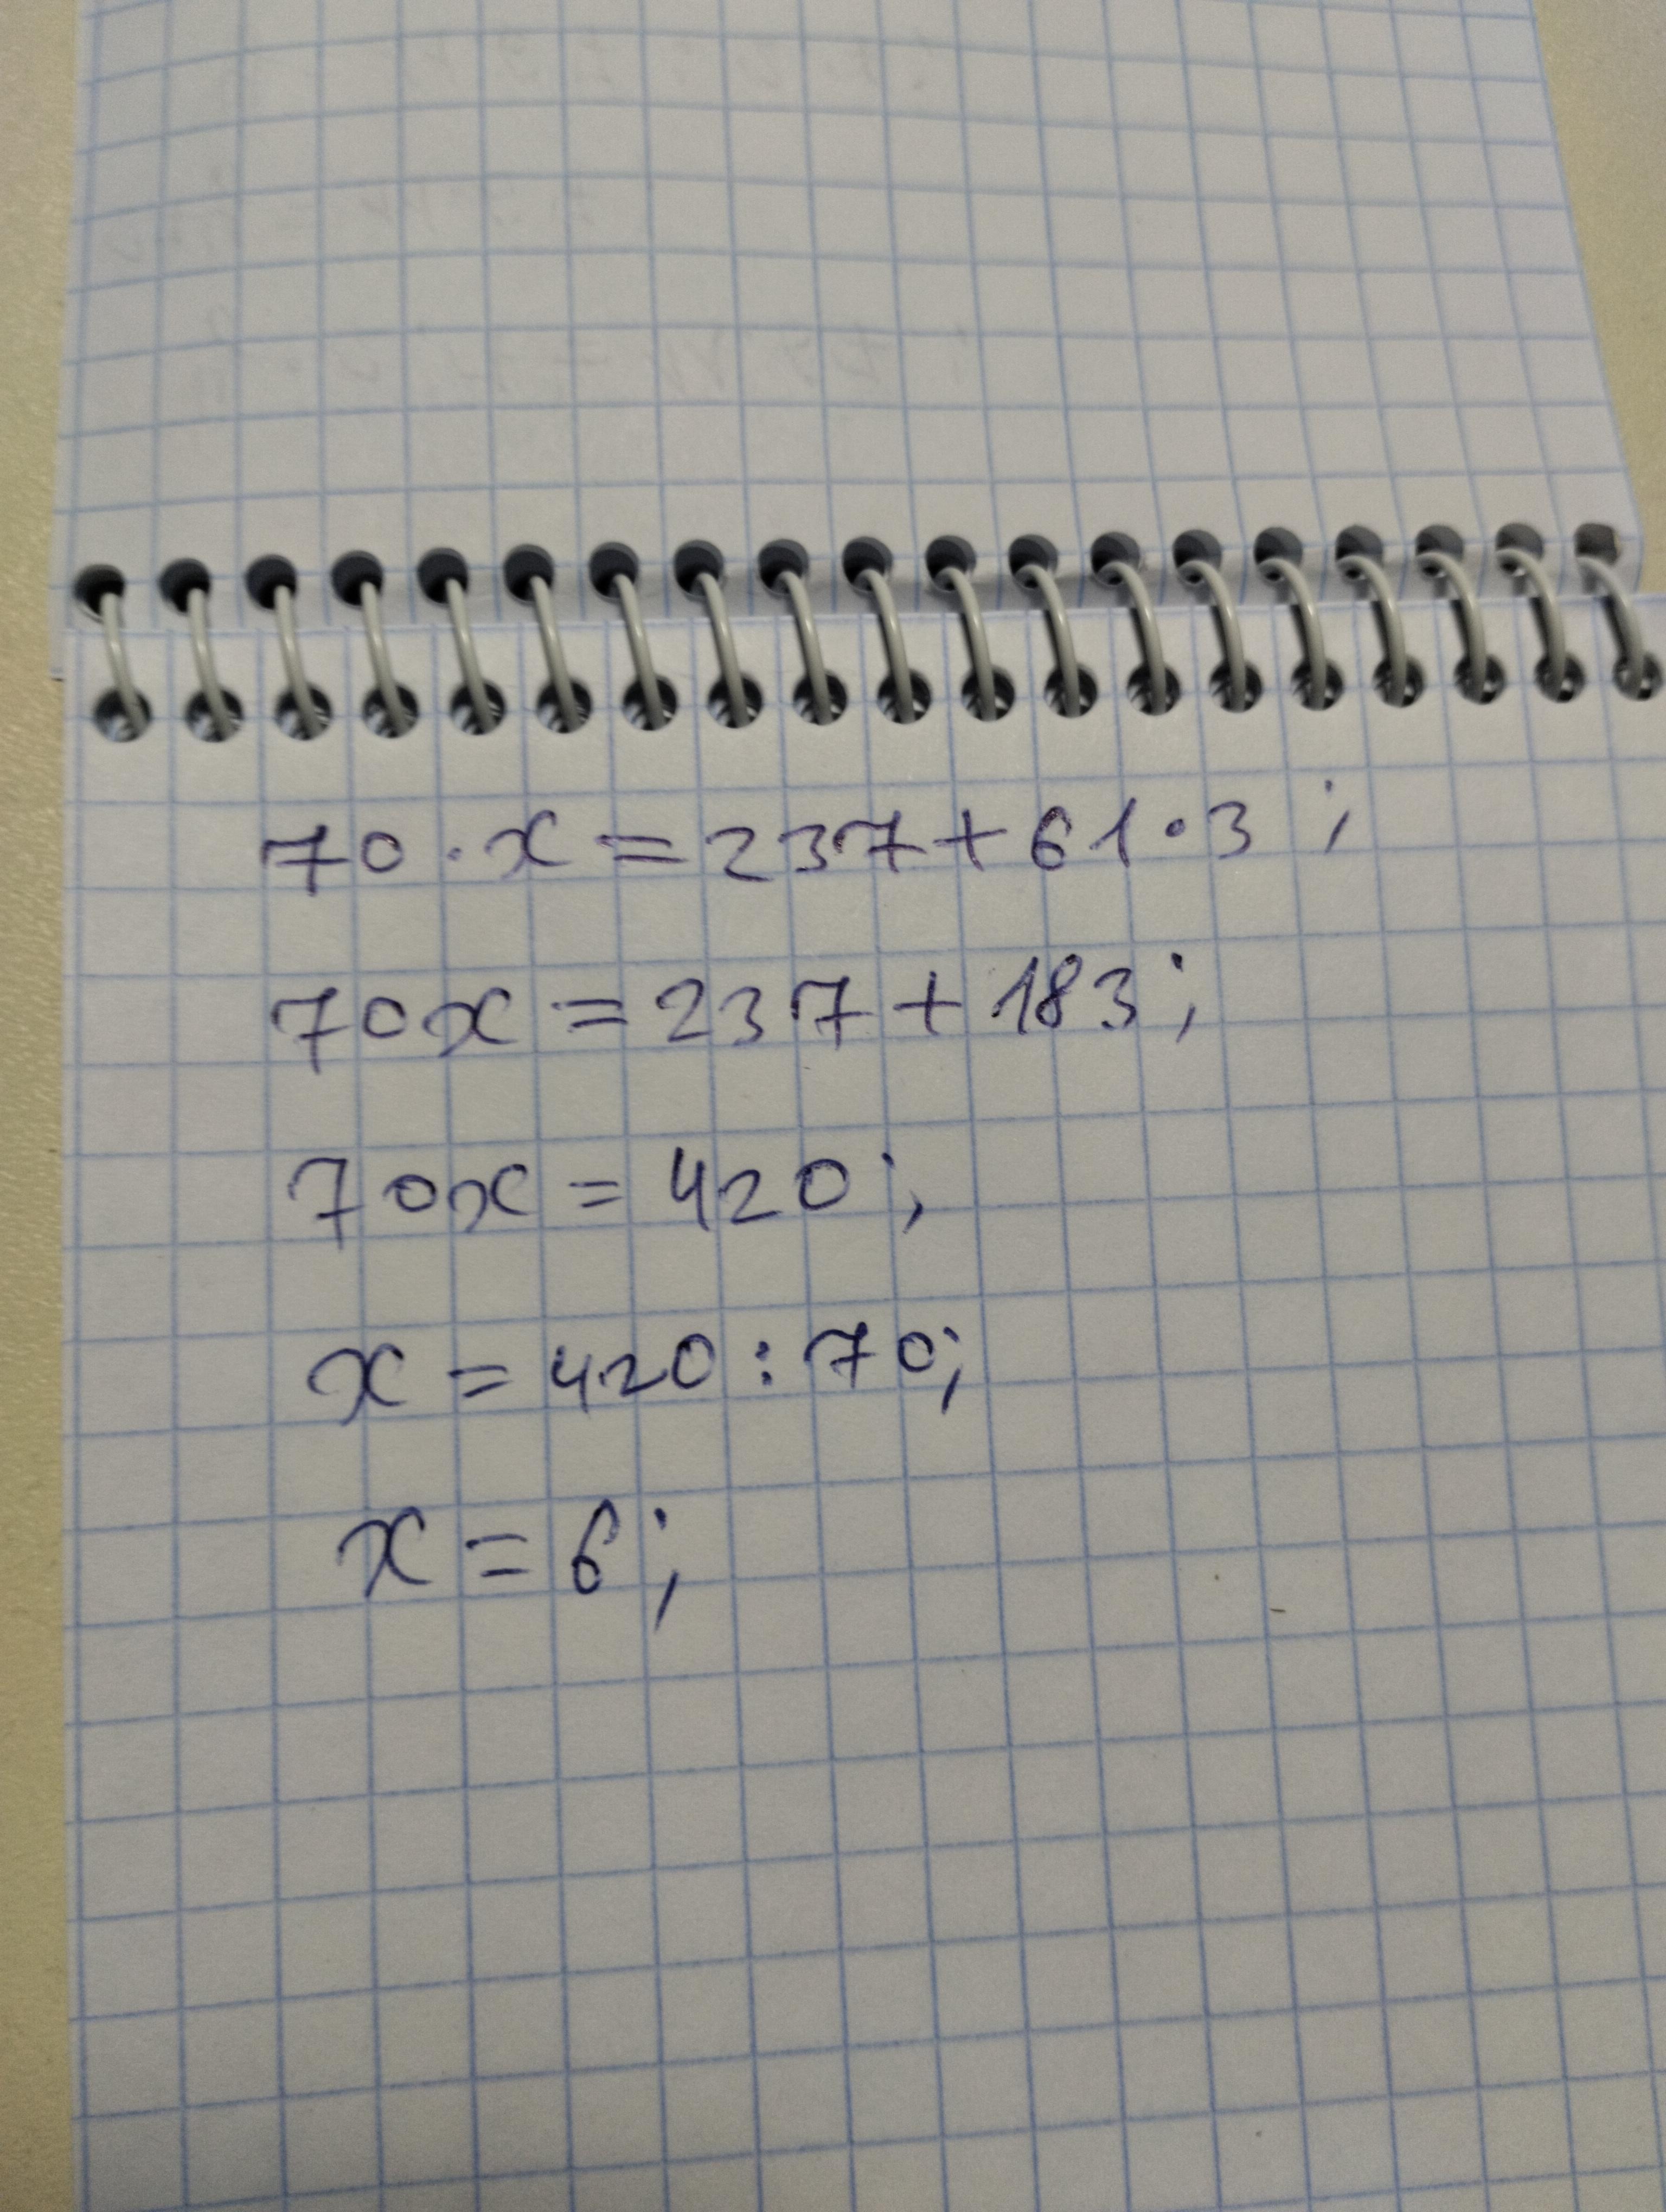 70 · x = 237 + 61 · 3 ;
70x = 237 + 183 ;
70x = 420 ;
x = 420 : 70 ;
x = 6 ;